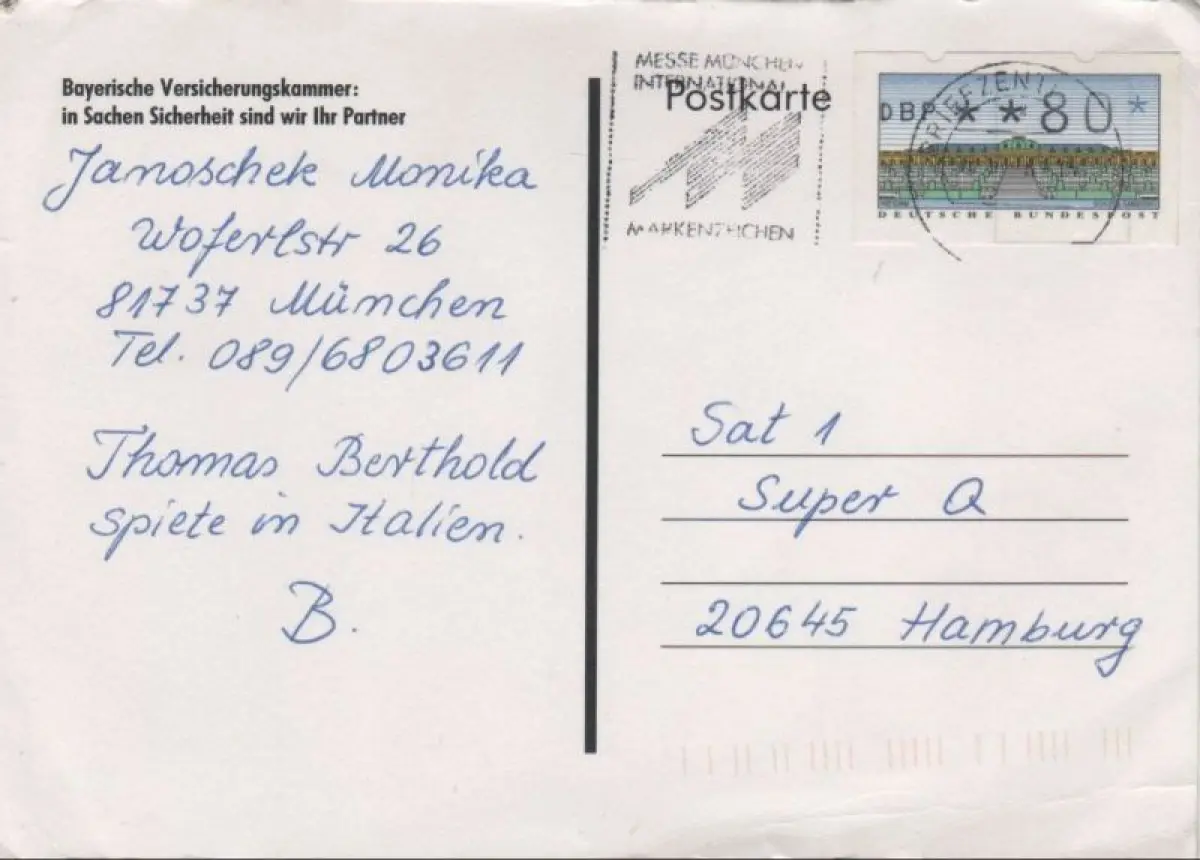 Bayerische Versicherungskammer:
in Sachen Sicherheit sind wir Ihr Partner
Janoschek Monika
Woferlstr 26
81737 München
Tel. 089/6803611
Thomas Berthold
spiete in Italien.
B.
MESSE MÜNCHEN
INTERNATIONAL
Postkarte
MARKENZEICHEN
DBP **80*
DEUTSCHE BUNDESPOST
BRIEFZENT
Sat 1
Super Q
20645 Hamburg